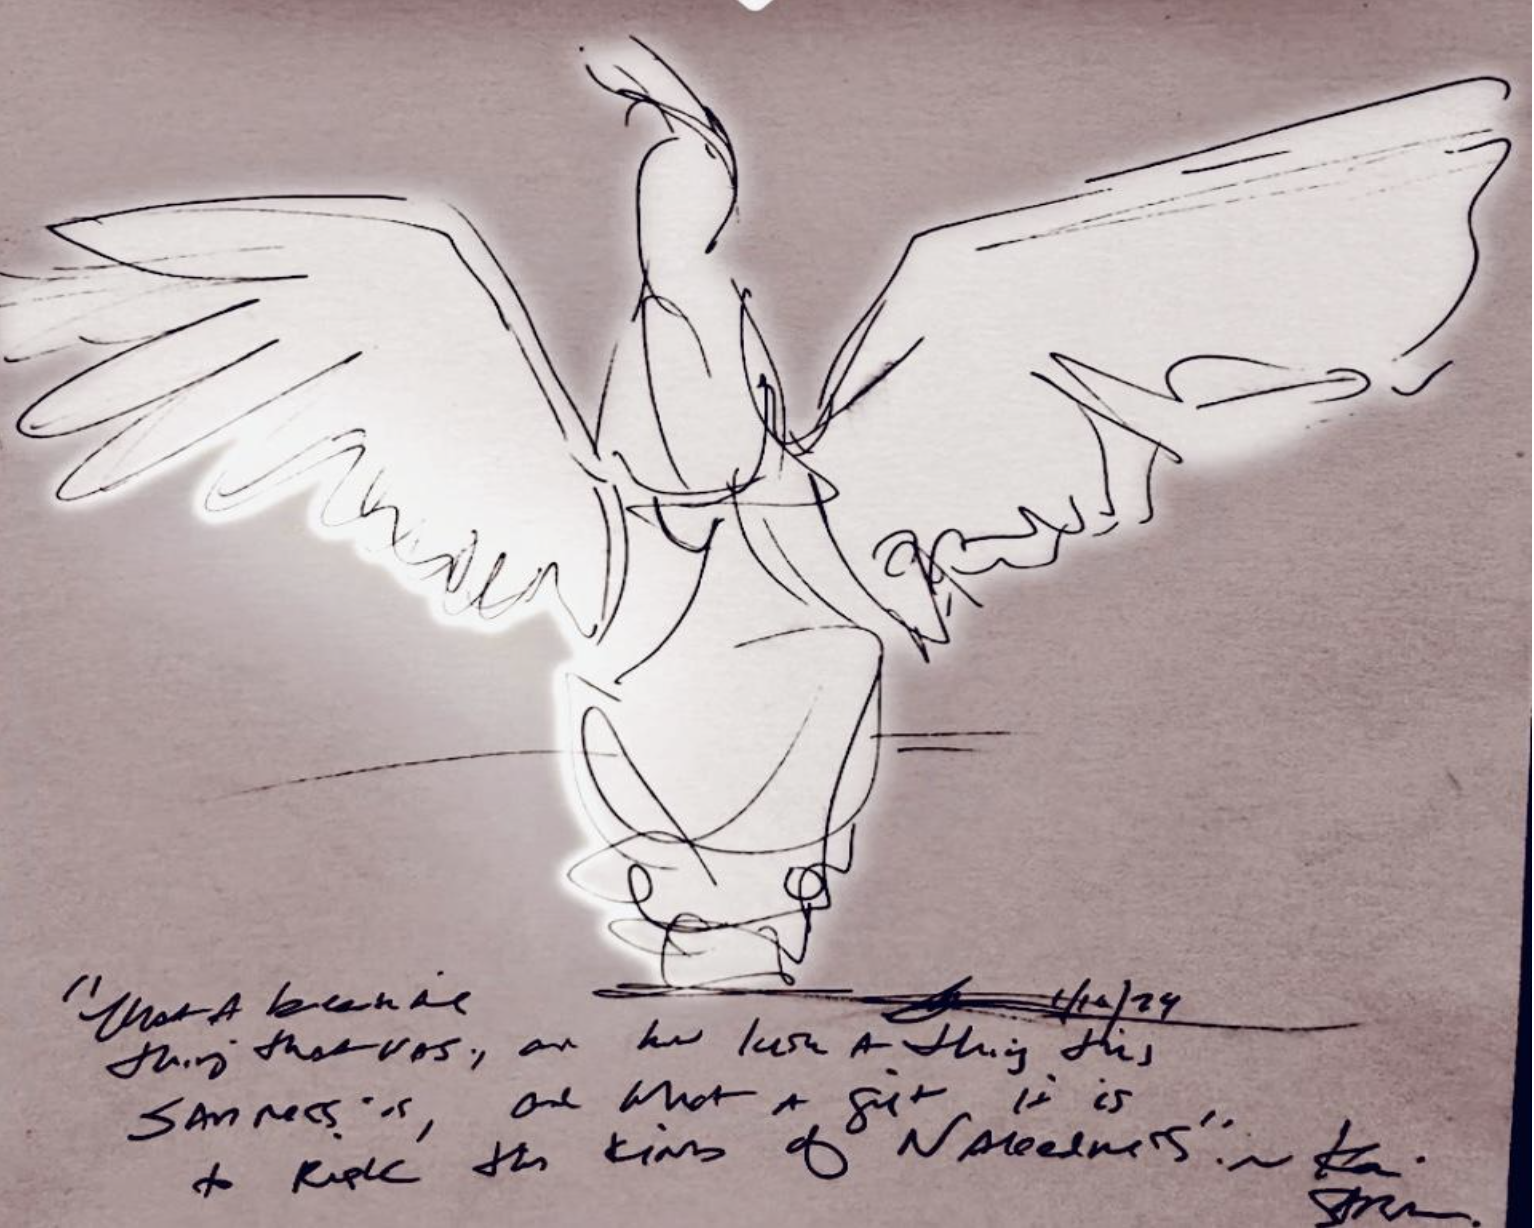 1/16/24
"What A beautiful
thing that was, and how lush A thing this
SADNess is, and what A gift it is
to Risk this kind of NAkedness". ~ Kai